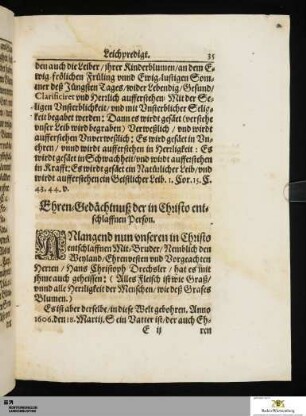 Leichpredigt. 35
den auch die Leiber / jhrer Kinderblumen / an dem E-
wig-frölichen Früling vnnd Ewig-lustigen Som-
mer deß Jüngsten Tages / wider Lebendig / Gesund /
Clarificiret vnd Herrlich aufferstehen / Mit der Se-
ligen Vnsterblichkeit / vnd mit Vnsterblicher Selig-
keit begabet werden: Dann es wirdt gesäet (verstehe
vnser Leib wird begraben) Verweßlich / vnd wirdt
aufferstehen Vnverweßlich: Es wird gesäet in Vn-
ehren / vnnd wirdt aufferstehen in Herrligkeit: Es
wirdt gesäet in Schwachheit / vnd wirdt aufferstehen
in Krafft: Es wirdt gesäet ein Natürlicher Leib / vnd
wirdt aufferstehen ein Geistlicher Leib. 1. Cor. 15. C.
43. 44. v.
Ehren-Gedächtnuß der in Christo ent-
schlaffnen Person.
ANlangend nun vnseren in Christo
entschlaffnen Mit-Bruder / Nemblich den
Weyland / Ehrenvesten vnd Vorgeachten
Herren / Hans Christoph Drechsler / hat es mit
jhme auch geheissen: (Alles Fleisch ist wie Graß /
vnnd alle Herrligkeit der Menschen / wie deß Grases
Blumen.)
Es ist aber derselbe / in diese Welt gebohren / Anno
1606. den 18. Martij. Sein Vatter ist / der auch Eh-
E ij ren